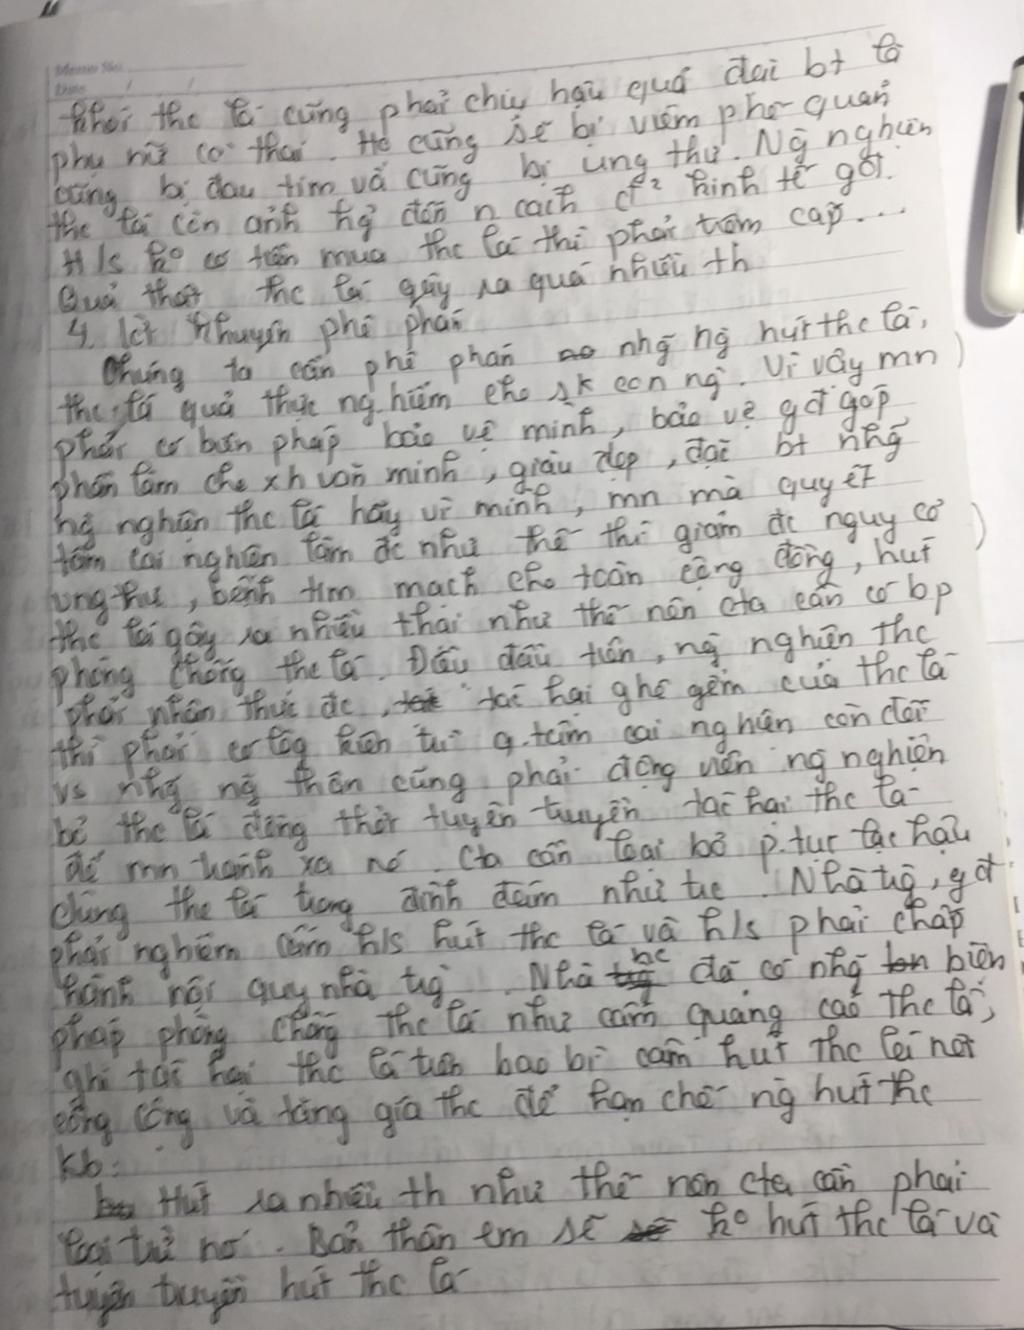 Memo No.
Date / /
khói thc lá cũng phải chịu hậu quả đại bt là
phụ nữ có thai. Họ cũng sẽ bị viêm phế quản
cũng bị đau tim và cũng bị ung thư. Ng nghiện
thc lá còn ảnh hg đến n cách đ² kinh tế gđ.
H/s ko có tiền mua thc lá thì phải trộm cắp...
Quả thật thc lá gây ra quá nhiều th
4. lời khuyên phê phán
Chúng ta cần phê phán nhg ng hút thc lá,
thc lá quả thực ng.hiểm cho sk con ng. Vì vậy mn
phải có biện pháp bảo vệ mình, bảo vệ gđ góp
phần làm cho xh văn minh, giàu đẹp, đặc bt nhg
ng nghiện thc lá hãy vì mình, mn mà quyết
tâm cai nghiện làm đc như thế thì giảm đc nguy cơ
ung thư, bệnh tim mạch cho toàn cộng đồng, hút
thc lá gây ra nhiều thái như thế nên cta cần có bp
phòng chống thc lá. Đầu đầu tiên, ng nghiện thc
phải nhận thức đc, tác hại ghê gớm của thc lá
thì phải có lòg kiên trì q.tâm cai nghiện còn đối
vs nhg ng thân cũng phải động viên ng nghiện
bỏ thc lá đồng thời tuyên truyền tác hại thc lá
để mn tránh xa nó. Cta cần loại bỏ p.tục lạc hậu
dùng thc lá trong đình đám như trc. Nhà trg, gđ
phải nghiêm cấm h/s hút thc lá và h/s phải chấp
hành nội quy nhà trg. Nhà nc đã có nhg biện
pháp phòng chống thc lá như cấm quảng cáo thc lá,
ghi tác hại thc lá trên bao bì cấm hút thc lá nơi
công cộng và tăng giá thc để hạn chế ng hút thc
Kb:
Hút ra nhiều th như thế nên cta cần phải
loại trừ nó. Bản thân em sẽ ko hút thc lá và
tuyên truyền hút thc lá